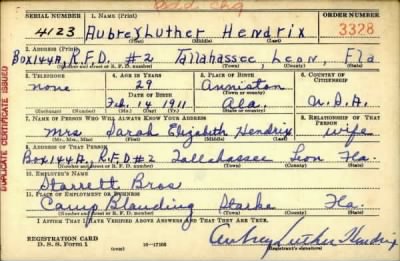 Add chg
SERIAL NUMBER 1. NAME (Print) ORDER NUMBER
4123 Aubrey Luther Hendrix 3328
(First) (Middle) (Last)
2. ADDRESS (Print)
Box 144A, R.F.D. #2 Tallahassee Leon, Fla
(Number and street or R. F. D. number) (Town) (County) (State)
3. TELEPHONE 4. AGE IN YEARS 5. PLACE OF BIRTH 6. COUNTRY OF CITIZENSHIP
none 29 Anniston
DATE OF BIRTH (Town or county)
Feb. 14 1911 Ala. U.S.A.
(Exchange) (No.) (Mo.) (Day) (Yr.) (State or country)
7. NAME OF PERSON WHO WILL ALWAYS KNOW YOUR ADDRESS 8. RELATIONSHIP OF THAT PERSON
Mrs Sarah Elizabeth Hendrix wife
(Mr., Mrs., Miss) (First) (Middle) (Last)
9. ADDRESS OF THAT PERSON
Box 144A, R.F.D #2 Tallahassee Leon Fla.
(Number and street or R. F. D. number) (Town) (County) (State)
10. EMPLOYER'S NAME
Starrett Bros
11. PLACE OF EMPLOYMENT OR BUSINESS
Camp Blanding Starke Fla.
(Number and street or R. F. D. number) (Town) (County) (State)
I AFFIRM THAT I HAVE VERIFIED ABOVE ANSWERS AND THAT THEY ARE TRUE.
REGISTRATION CARD
D. S. S. Form 1 16—17105 Aubrey Luther Hendrix
(Registrant's signature)
DUPLICATE CERTIFICATE ISSUED